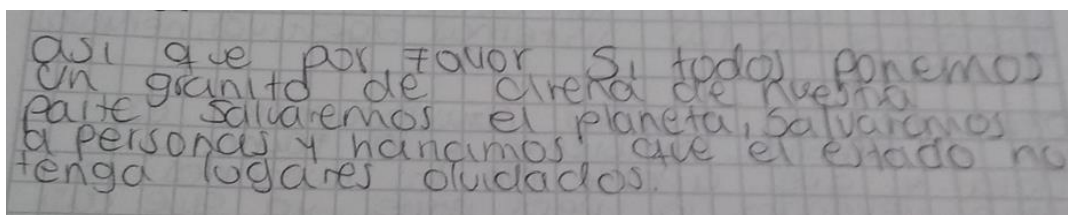 asi que por favor Si todos ponemos
un granito de arena de nuestra
parte salvaremos el planeta, salvaremos
a personas y haríamos que el estado no
tenga logares olvidados.